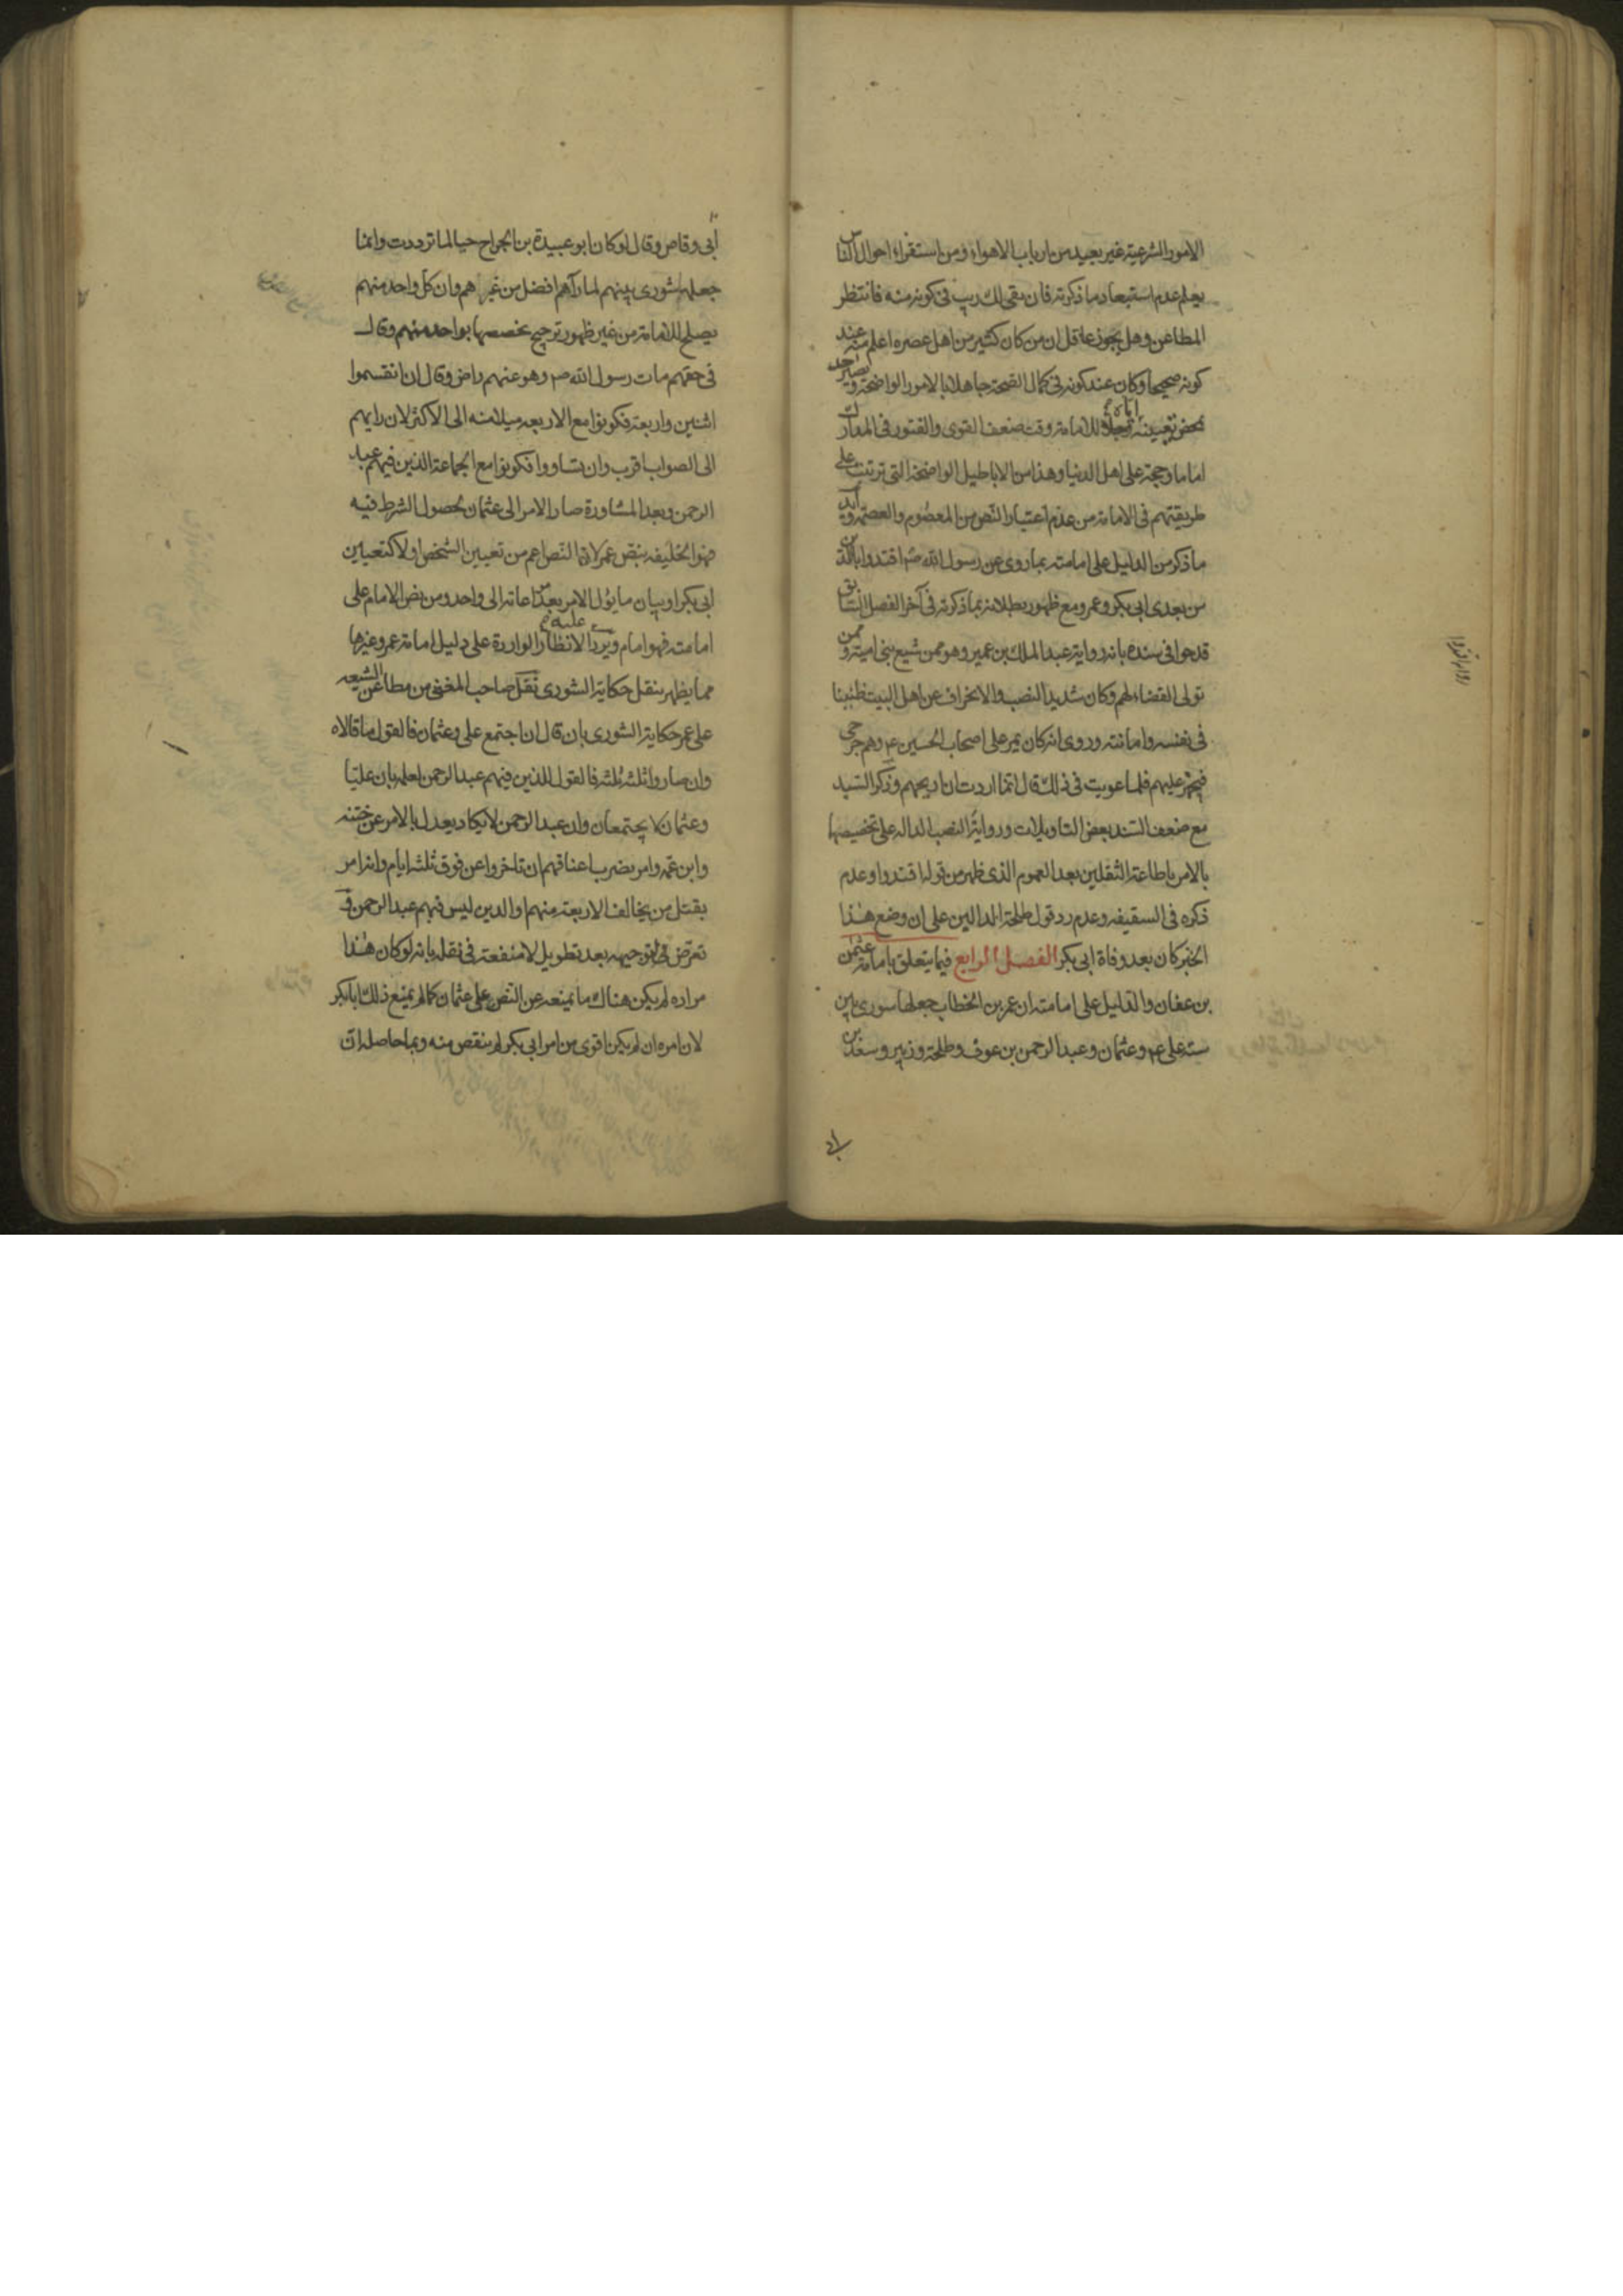 الامور الشرعية غير بعيد من ارباب الاهواء ومن استقراء احوال الناس
يعلم عدم استبعاد ما ذكرته فان بقى لك ريب فى كونه منه فانتظر
المطاعن وهل يجوز عاقل ان من كان كثير من اهل عصره اعلم منه عند
كونه صحيحا وكان عند كونه فى كمال الصحة جاهلا بالامور الواضحة ويصير
بمحض تعيينه اياه للامامة وقت ضعف القوى والفتور فى المدارك
اماما وحجة على اهل الدنيا وهذا من الاباطيل الواضحة التى ترتبت على
طريقتهم فى الامامة من عدم اعتبار النص من المعصوم والعصمة وايد
ما ذكر من الدليل على امامته بما روى عن رسول الله ص اقتدوا بالذين
من بعدى ابى بكر وعمر ومع ظهور بطلانه بما ذكرته فى آخر الفصل السابق
قدحوا فى سنده بانه رواية عبد الملك بن عمير وهو ممن شيع بنى امية وممن
تولى القضاء لهم وكان شديد النصب والانحراف عن اهل البيت ظنينا
فى نفسه وامانته وروى انه كان يمر على اصحاب الحسين ع وهم جرحى
فيجهز عليهم فلما عوتب فى ذلك قال انما اردت ان اريحهم وذكر السيد
مع ضعف السند بعض التاويلات ورواية النصب الداله على تخصيصها
بالامر باطاعة الثقلين بعد العموم الذى ظهر من قوله اقتدوا وعدم
ذكره فى السقيفه وعدم رد قول طلحة الدالين على ان وضع هذا
الخبر كان بعد وفاة ابى بكر الفصل الرابع فيما يتعلق بامامة عثمن
بن عفان والدليل على امامته ان عمر بن الخطاب جعلها شورى بين
سته على ع وعثمان وعبد الرحمن بن عوف وطلحة وزبير وسعد بن
ابى وقاص وقال لو كان ابو عبيدة بن الجراح حيا لما ترددت وانما
جعلها شورى بينهم لما رآهم افضل من غيرهم وان كل واحد منهم
يصلح للامامة من غير ظهور ترجيح يخصصها بواحد منهم وقال
فى حقهم مات رسول الله ص وهو عنهم راض وقال ان انقسموا
اثنين واربعة فكونوا مع الاربعه ميلا منه الى الاكثر لان رايهم
الى الصواب اقرب وان تساووا فكونوا مع الجماعة الذين فيهم عبد
الرحمن وبعد المشاورة صار الامر الى عثمان لحصول الشرط فيه
فهو الخليفه بنص عمر لان النص اعم من تعيين الشخص اولا كتعيين
ابى بكر او بيان ما يؤل الامر بعد مراعاته الى واحد ومن نص الامام على
امامته فهو امام ويرد عليه الانظار الواردة على دليل امامة عمر وغيرها
مما يظهر بنقل حكاية الشورى نقل صاحب المغنى من مطاعن الشيعه
على عمر حكاية الشورى بان قال ان اجتمع على وعثمان فالقول ما قالاه
وان صاروا ثلثه ثلثه فالقول للذين فيهم عبد الرحمن لعلمه بان عليا
وعثمان لا يجتمعان وان عبد الرحمن لا يكاد يعدل بالامر عن ختنه
وابن عمه وامر بضرب اعناقهم ان تاخروا عن فوق ثلثه ايام وانه امر
بقتل من يخالف الاربعة منهم او الذين ليس فيهم عبد الرحمن و
تعرض فى توجيهه بعد تطويل لا منفعة فى نقله بانه لو كان هذا
مراده لم يكن هناك ما يمنعه عن النص على عثمان كما لم يمنع ذلك ابا بكر
لان امره ان لم يكن اقوى من امر ابى بكر لم ينقص منه وما حاصله ان